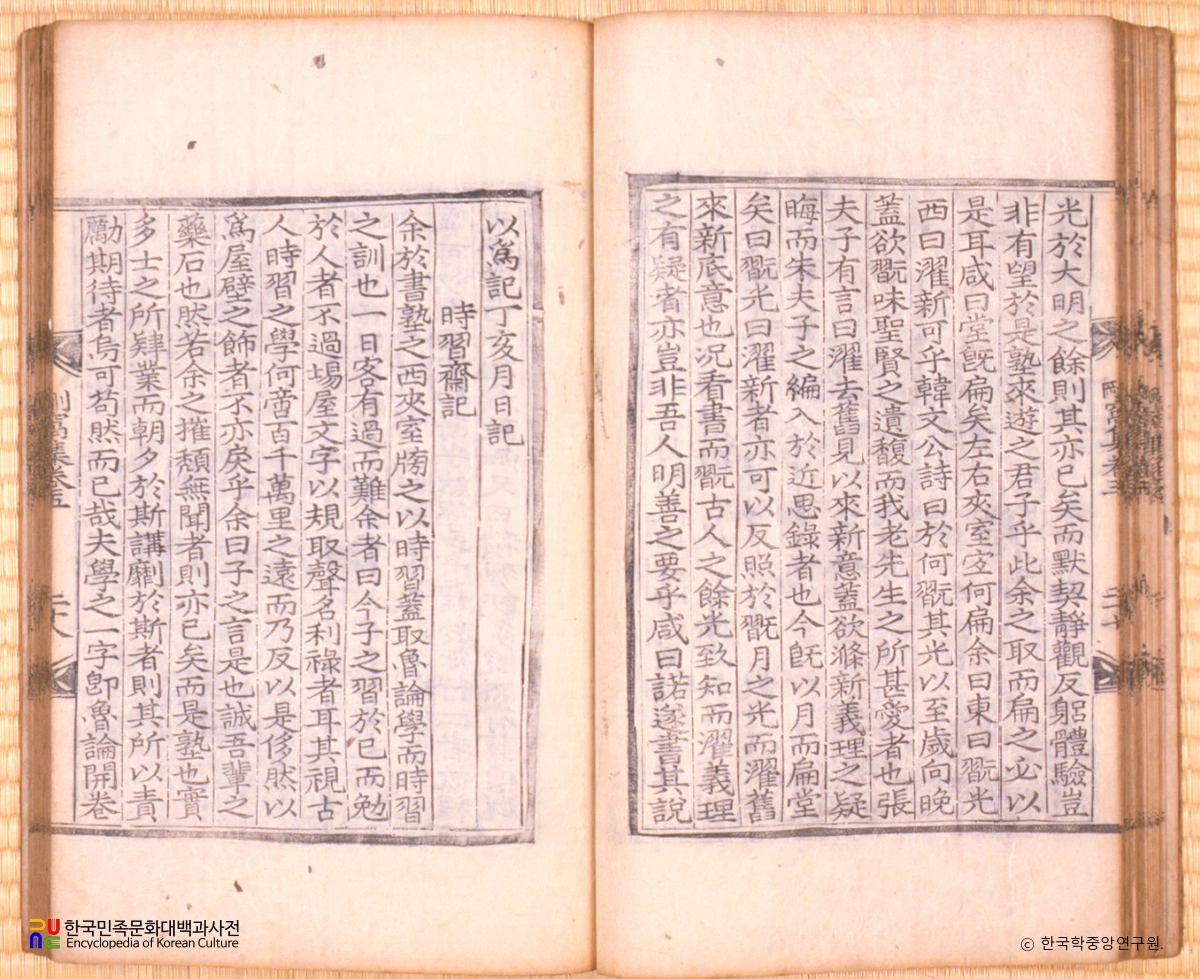 光於大明之餘則其亦已矣而默契靜觀反躳體驗豈
非有望於是塾來遊之君子乎此余之取而扁之必以
是耳咸曰堂旣扁矣左右夾室宜何扁余曰東曰翫光
西曰濯新可乎韓文公詩曰於何翫其光以至歲向晚
蓋欲翫味聖賢之遺馥而我老先生之所甚愛者也張
夫子有言曰濯去舊見以來新意蓋欲滌新義理之疑
晦而朱夫子之編入於近思錄者也今旣以月而扁堂
矣曰翫光曰濯新者亦可以反照於翫月之光而濯舊
來新底意也況看書而翫古人之餘光致知而濯義理
之有疑者亦豈非吾人明善之要乎咸曰諾遂書其說
以爲記丁亥月日記
時習齋記
余於書塾之西夾室牓之以時習蓋取魯論學而時習
之訓也一日客有過而難余者曰今子之習於已而勉
於人者不過場屋文字以規取聲名利祿者耳其視古
人時習之學何啻百千萬里之遠而乃反以是侈然以
爲屋壁之飾者不亦戾乎余曰子之言是也誠吾輩之
藥石也然若余之摧頹無聞者則亦已矣而是塾也實
多士之所肄業而朝夕於斯講劘於斯者則其所以責
勵期待者烏可苟然而已哉夫學之一字卽魯論開卷
窩集卷
二十八
한국민족문화대백과사전
Encyclopedia of Korean Culture
ⓒ 한국학중앙연구원.